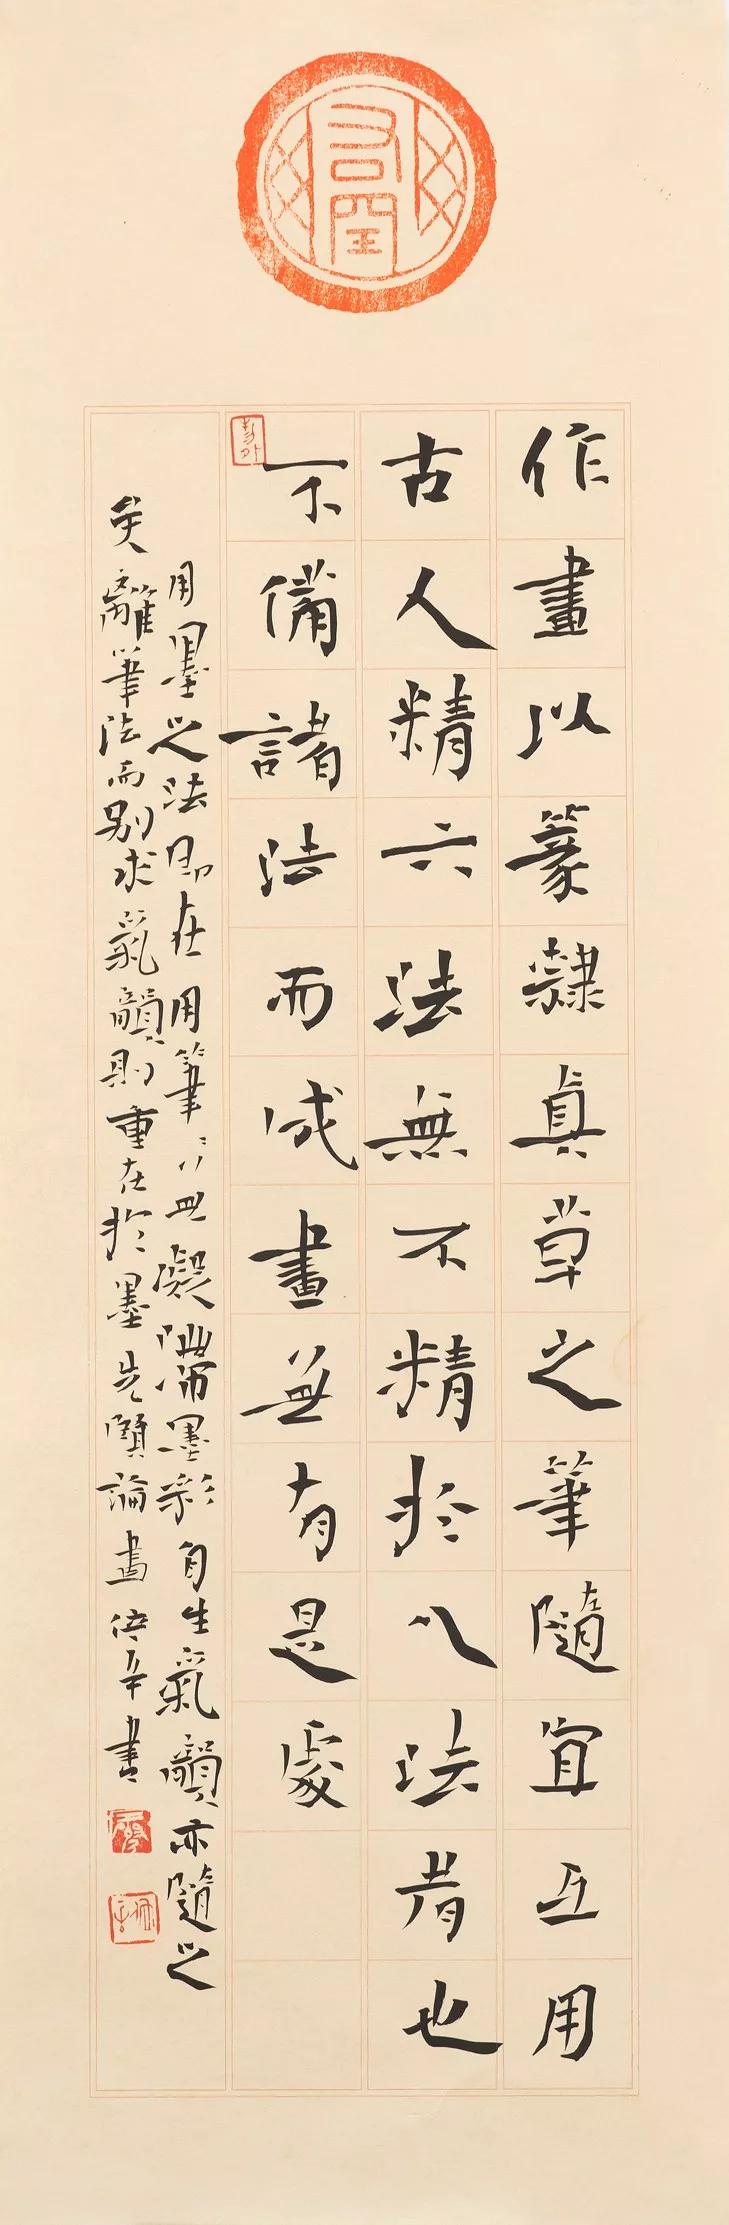 作畫以篆隸真草之筆隨宜互用
古人精六法無不精於八法者也
不備諸法而成畫無有是處
用墨之法即在用筆〻無凝滯墨彩自生氣韻亦隨之
矣離筆法而別求氣韻則重在於墨先論畫辛書